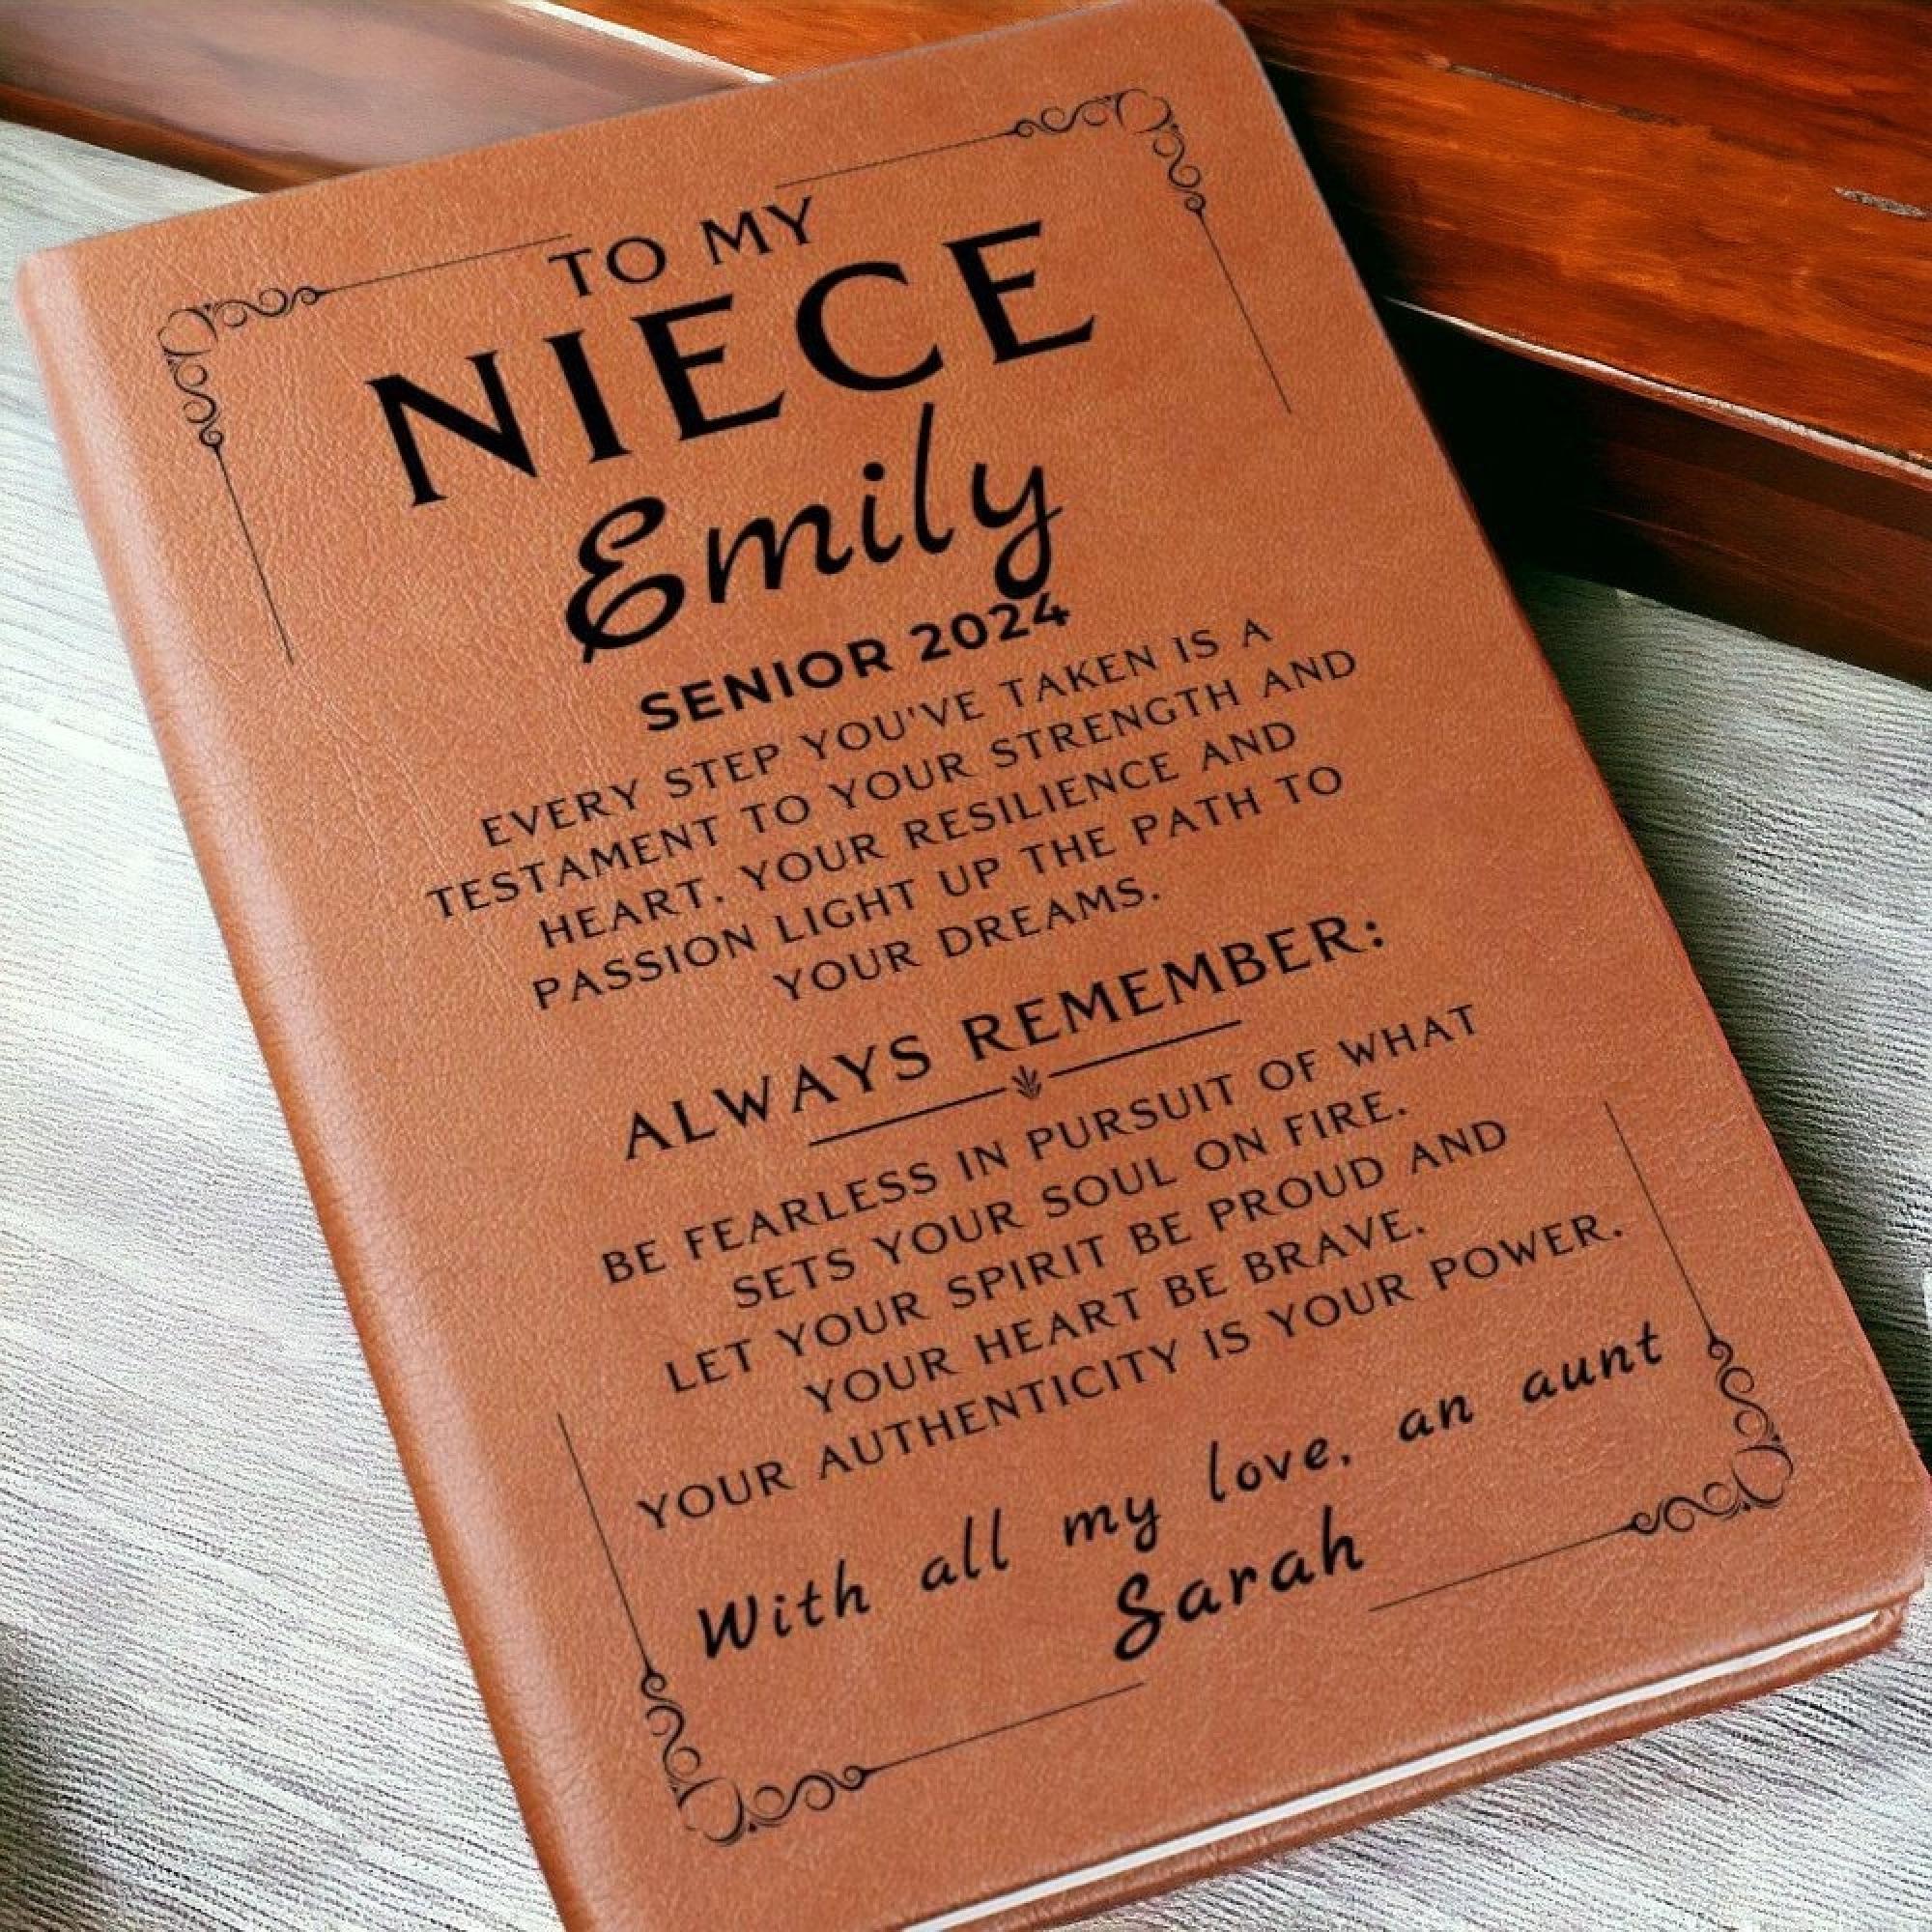 TO MY
NIECE
Emily
SENIOR 2024
EVERY STEP YOU'VE TAKEN IS A
TESTAMENT TO YOUR STRENGTH AND
HEART. YOUR RESILIENCE AND
PASSION LIGHT UP THE PATH TO
YOUR DREAMS.
ALWAYS REMEMBER:
BE FEARLESS IN PURSUIT OF WHAT
SETS YOUR SOUL ON FIRE.
LET YOUR SPIRIT BE PROUD AND
YOUR HEART BE BRAVE.
YOUR AUTHENTICITY IS YOUR POWER.
With all my love, an aunt
Sarah